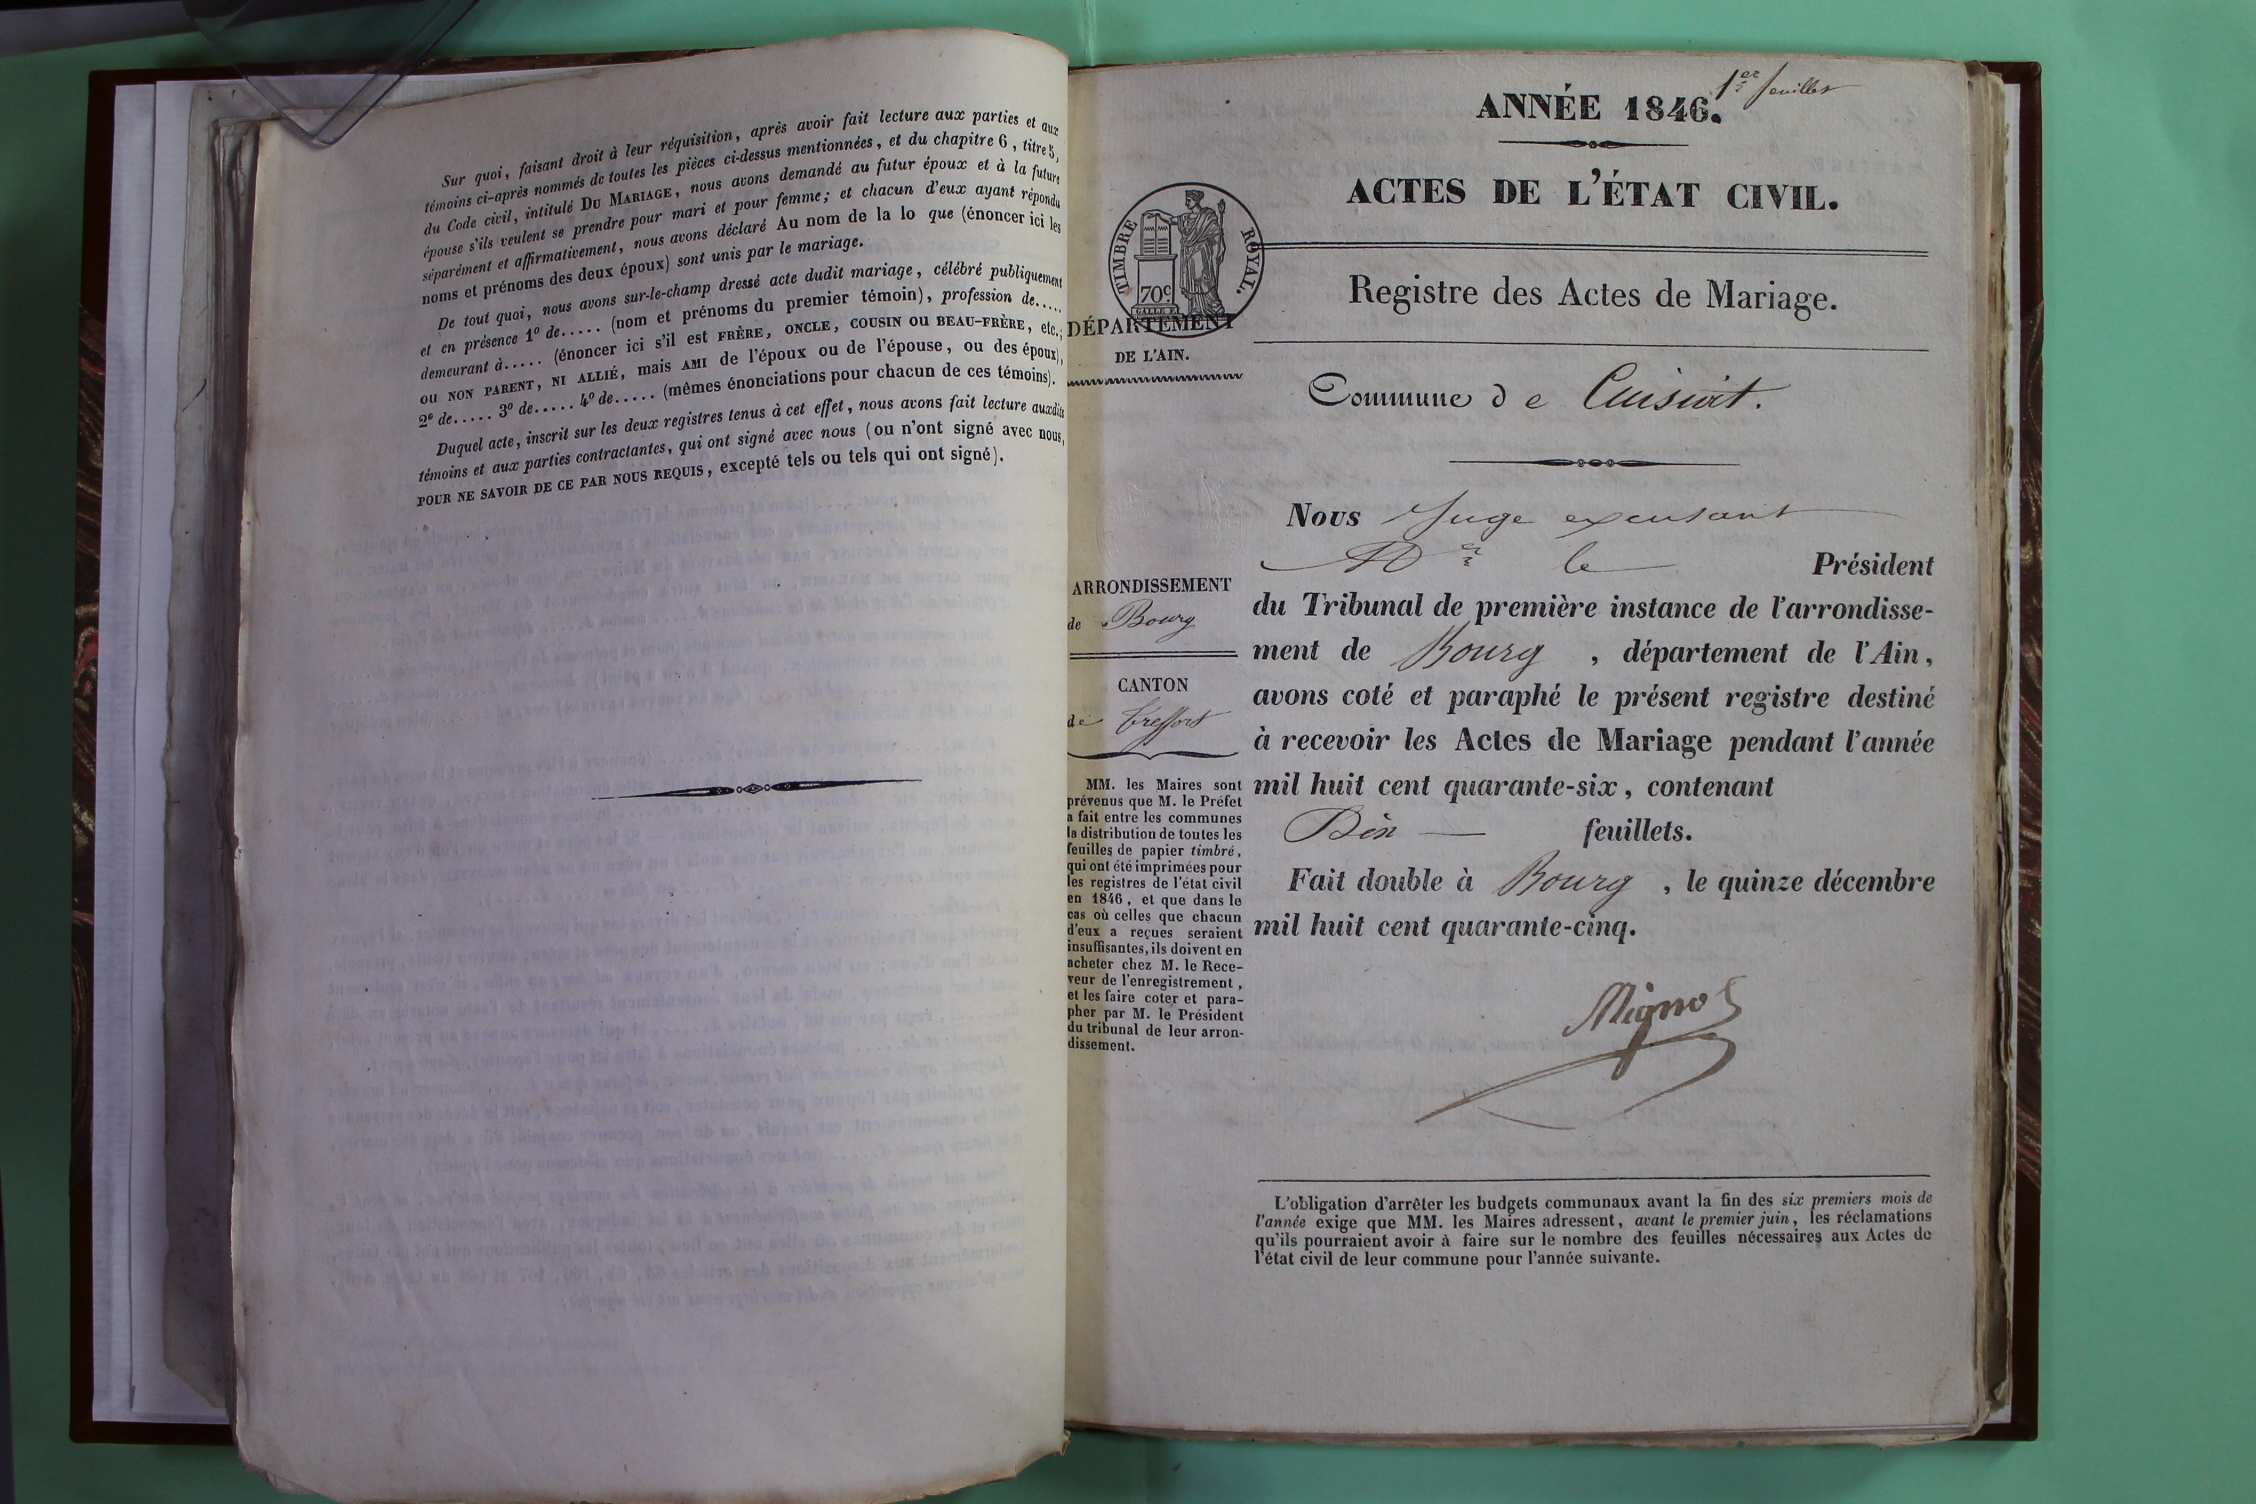 Sur quoi, faisant droit à leur réquisition, après avoir fait lecture aux parties et aux
témoins ci-après nommés de toutes les pièces ci-dessus mentionnées, et du chapitre 6, titre 5,
du Code civil, intitulé DU MARIAGE, nous avons demandé au futur époux et à la future
épouse s'ils veulent se prendre pour mari et pour femme; et chacun d'eux ayant répondu
séparément et affirmativement, nous avons déclaré Au nom de la lo que (énoncer ici les
noms et prénoms des deux époux) sont unis par le mariage.
De tout quoi, nous avons sur-le-champ dressé acte dudit mariage, célébré publiquement
et en présence 1º de..... (nom et prénoms du premier témoin), profession de....
demeurant à..... (énoncer ici s'il est FRÈRE, ONCLE, COUSIN OU BEAU-FRÈRE, etc.;
OU NON PARENT, NI ALLIÉ, mais AMI de l'époux ou de l'épouse, ou des époux),
2º de..... 3º de..... 4º de..... (mêmes énonciations pour chacun de ces témoins).
Duquel acte, inscrit sur les deux registres tenus à cet effet, nous avons fait lecture auxdits
témoins et aux parties contractantes, qui ont signé avec nous (ou n'ont signé avec nous,
POUR NE SAVOIR DE CE PAR NOUS REQUIS, excepté tels ou tels qui ont signé).
1er feuillet
ANNÉE 1846.
ACTES DE L'ÉTAT CIVIL.
TIMBRE ROYAL.
70c
Registre des Actes de Mariage.
DÉPARTEMENT
DE L'AIN.
Commune de Cuisiat.
Nous Juge excusant
Mr le Président
ARRONDISSEMENT
de Bourg
du Tribunal de première instance de l'arrondisse-
ment de Bourg, département de l'Ain,
CANTON
de Treffort
avons coté et paraphé le présent registre destiné
à recevoir les Actes de Mariage pendant l'année
mil huit cent quarante-six, contenant
Dix feuillets.
Fait double à Bourg, le quinze décembre
mil huit cent quarante-cinq.
MM. les Maires sont
prévenus que M. le Préfet
a fait entre les communes
la distribution de toutes les
feuilles de papier timbré,
qui ont été imprimées pour
les registres de l'état civil
en 1846, et que dans le
cas où celles que chacun
d'eux a reçues seraient
insuffisantes, ils doivent en
acheter chez M. le Rece-
veur de l'enregistrement,
et les faire coter et para-
pher par M. le Président
du tribunal de leur arron-
dissement.
L'obligation d'arrêter les budgets communaux avant la fin des six premiers mois de
l'année exige que MM. les Maires adressent, avant le premier juin, les réclamations
qu'ils pourraient avoir à faire sur le nombre des feuilles nécessaires aux Actes de
l'état civil de leur commune pour l'année suivante.